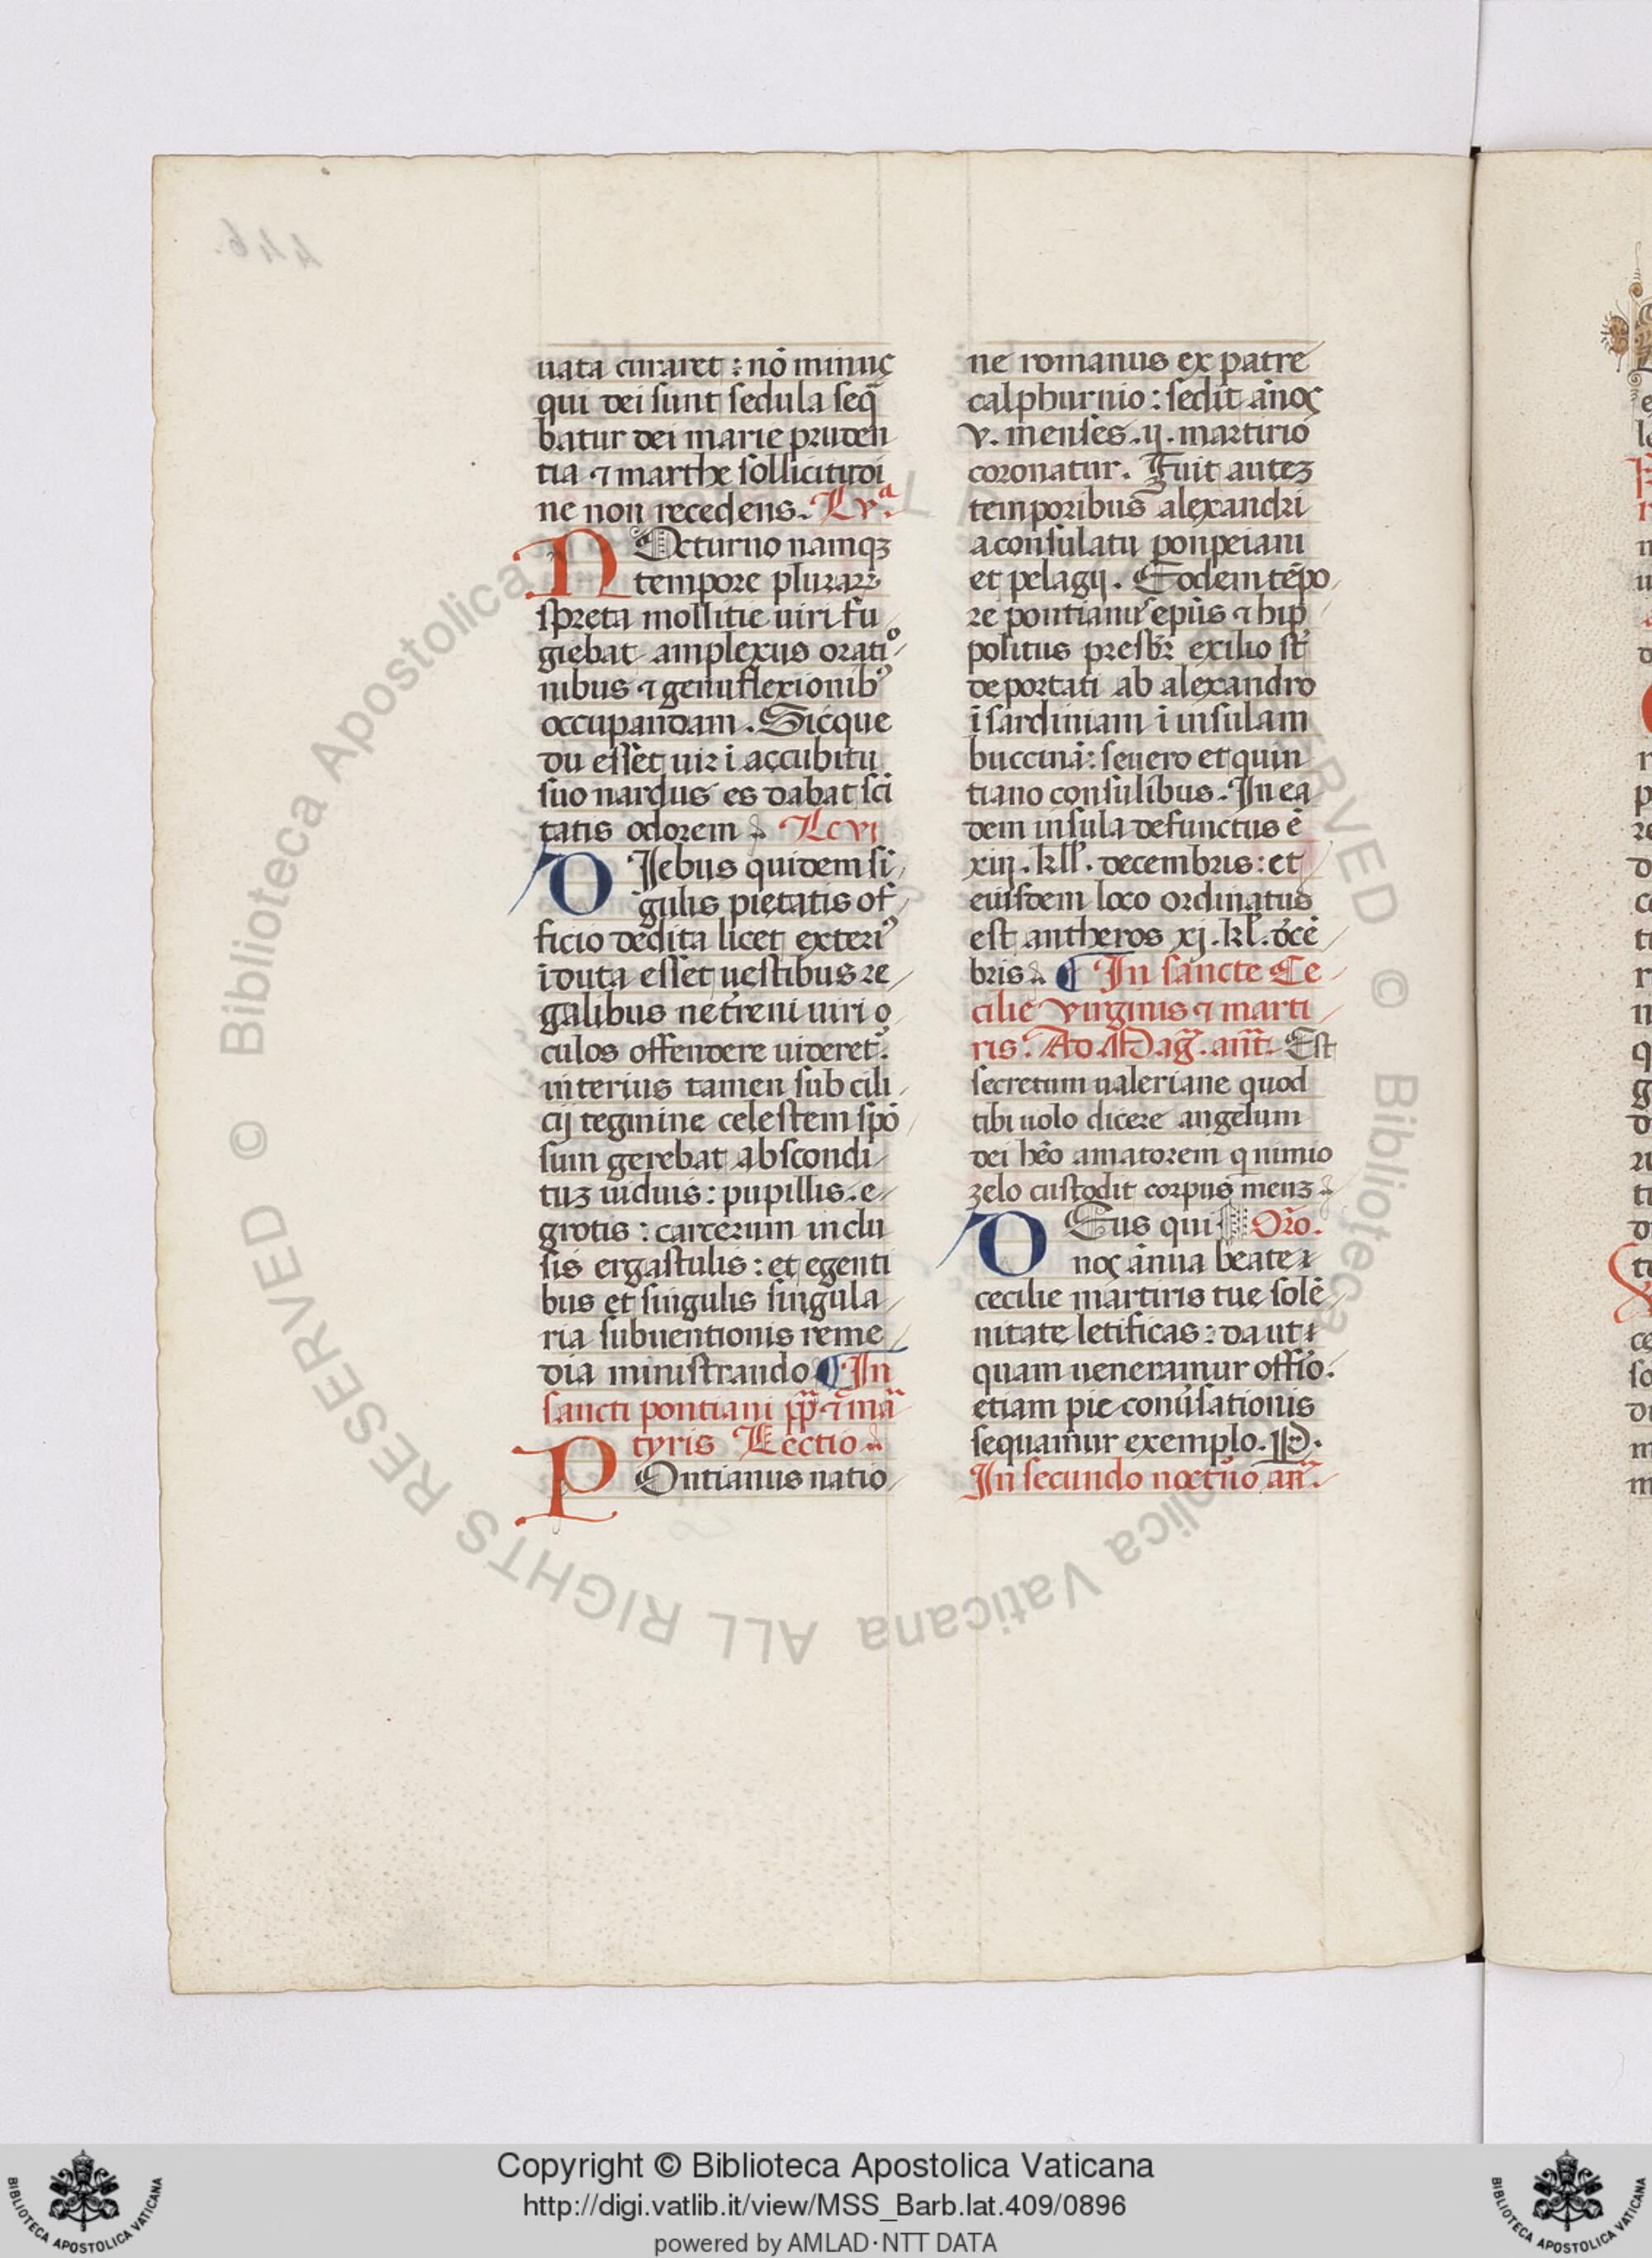 uata curaret : nō minuꝰ
qui dei sunt sedula seq̄
batur dei marie pruden
tia ⁊ marthe sollicitudi
ne non recedens. Lc̄ vᵃ.
NOcturno namqꝫ
tempore plurar̄
spreta mollitie uiri fu
giebat amplexus oratiᵒ
nibus ⁊ genuflexionibꝰ
occupandam. Sicque
dū esset uir ī accubitu
suo nardus eꝰ dabat scī
tatis odorem Lc̄ vi
DIebus quidem sī
gulis pietatis of
ficio dedita licet exteriꝰ
īduta esset uestibus re
galibus ne t̄reni uiri o
culos offendere uideret᷑.
interius tamen sub cili
cij tegmine celestem spō
sum gerebat abscondi
tuꝫ uiduis : pupillis. e
grotis : carcerum inclu
sis ergastulis : et egenti
bus et singulis singula
ria subuentionis reme
dia ministrando ¶ In
sancti pontiani pp̄ ⁊ mā
tyris Lectio
POntianus natio
ne romanus ex patre
calphurnio : sedit ānoꝰ
v. menses. ij. martirio
coronatur. Fuit auteꝫ
temporibus alexandri
a consulatu ponpeiani
et pelagij. Eodem tēpo
re pontianuˢ ep̄us ⁊ hip
politus presbr̄ exilio st̄
deportati ab alexandro
ī sardiniam ī insulam
buccinā : seuero et quin
tiano consulibus. In ea
dem insula defunctus ē
xiij. kll̄. decembris : et
eiusdem loco ordinatus
est antheros xj. kl̄. d̄cē
bris ¶ In sancte Ce
cilie virginis ⁊ marti
ris. Ad Mag̃. ant̄. Est
secretum ualeriane quod
tibi uolo dicere angelum
dei hēo amatorem q nimio
zelo custodit corpus meuꝫ
DEus qui Oro.
noꝰ ānua beate
cecilie martiris tue solē
nitate letificas : da ut
quam ueneramur offīo.
etiam pie conuˀsationis
sequamur exemplo. P.
In secundo noctuˀo an̄.
Copyright © Biblioteca Apostolica Vaticana
http://digi.vatlib.it/view/MSS_Barb.lat.409/0896
powered by AMLAD·NTT DATA